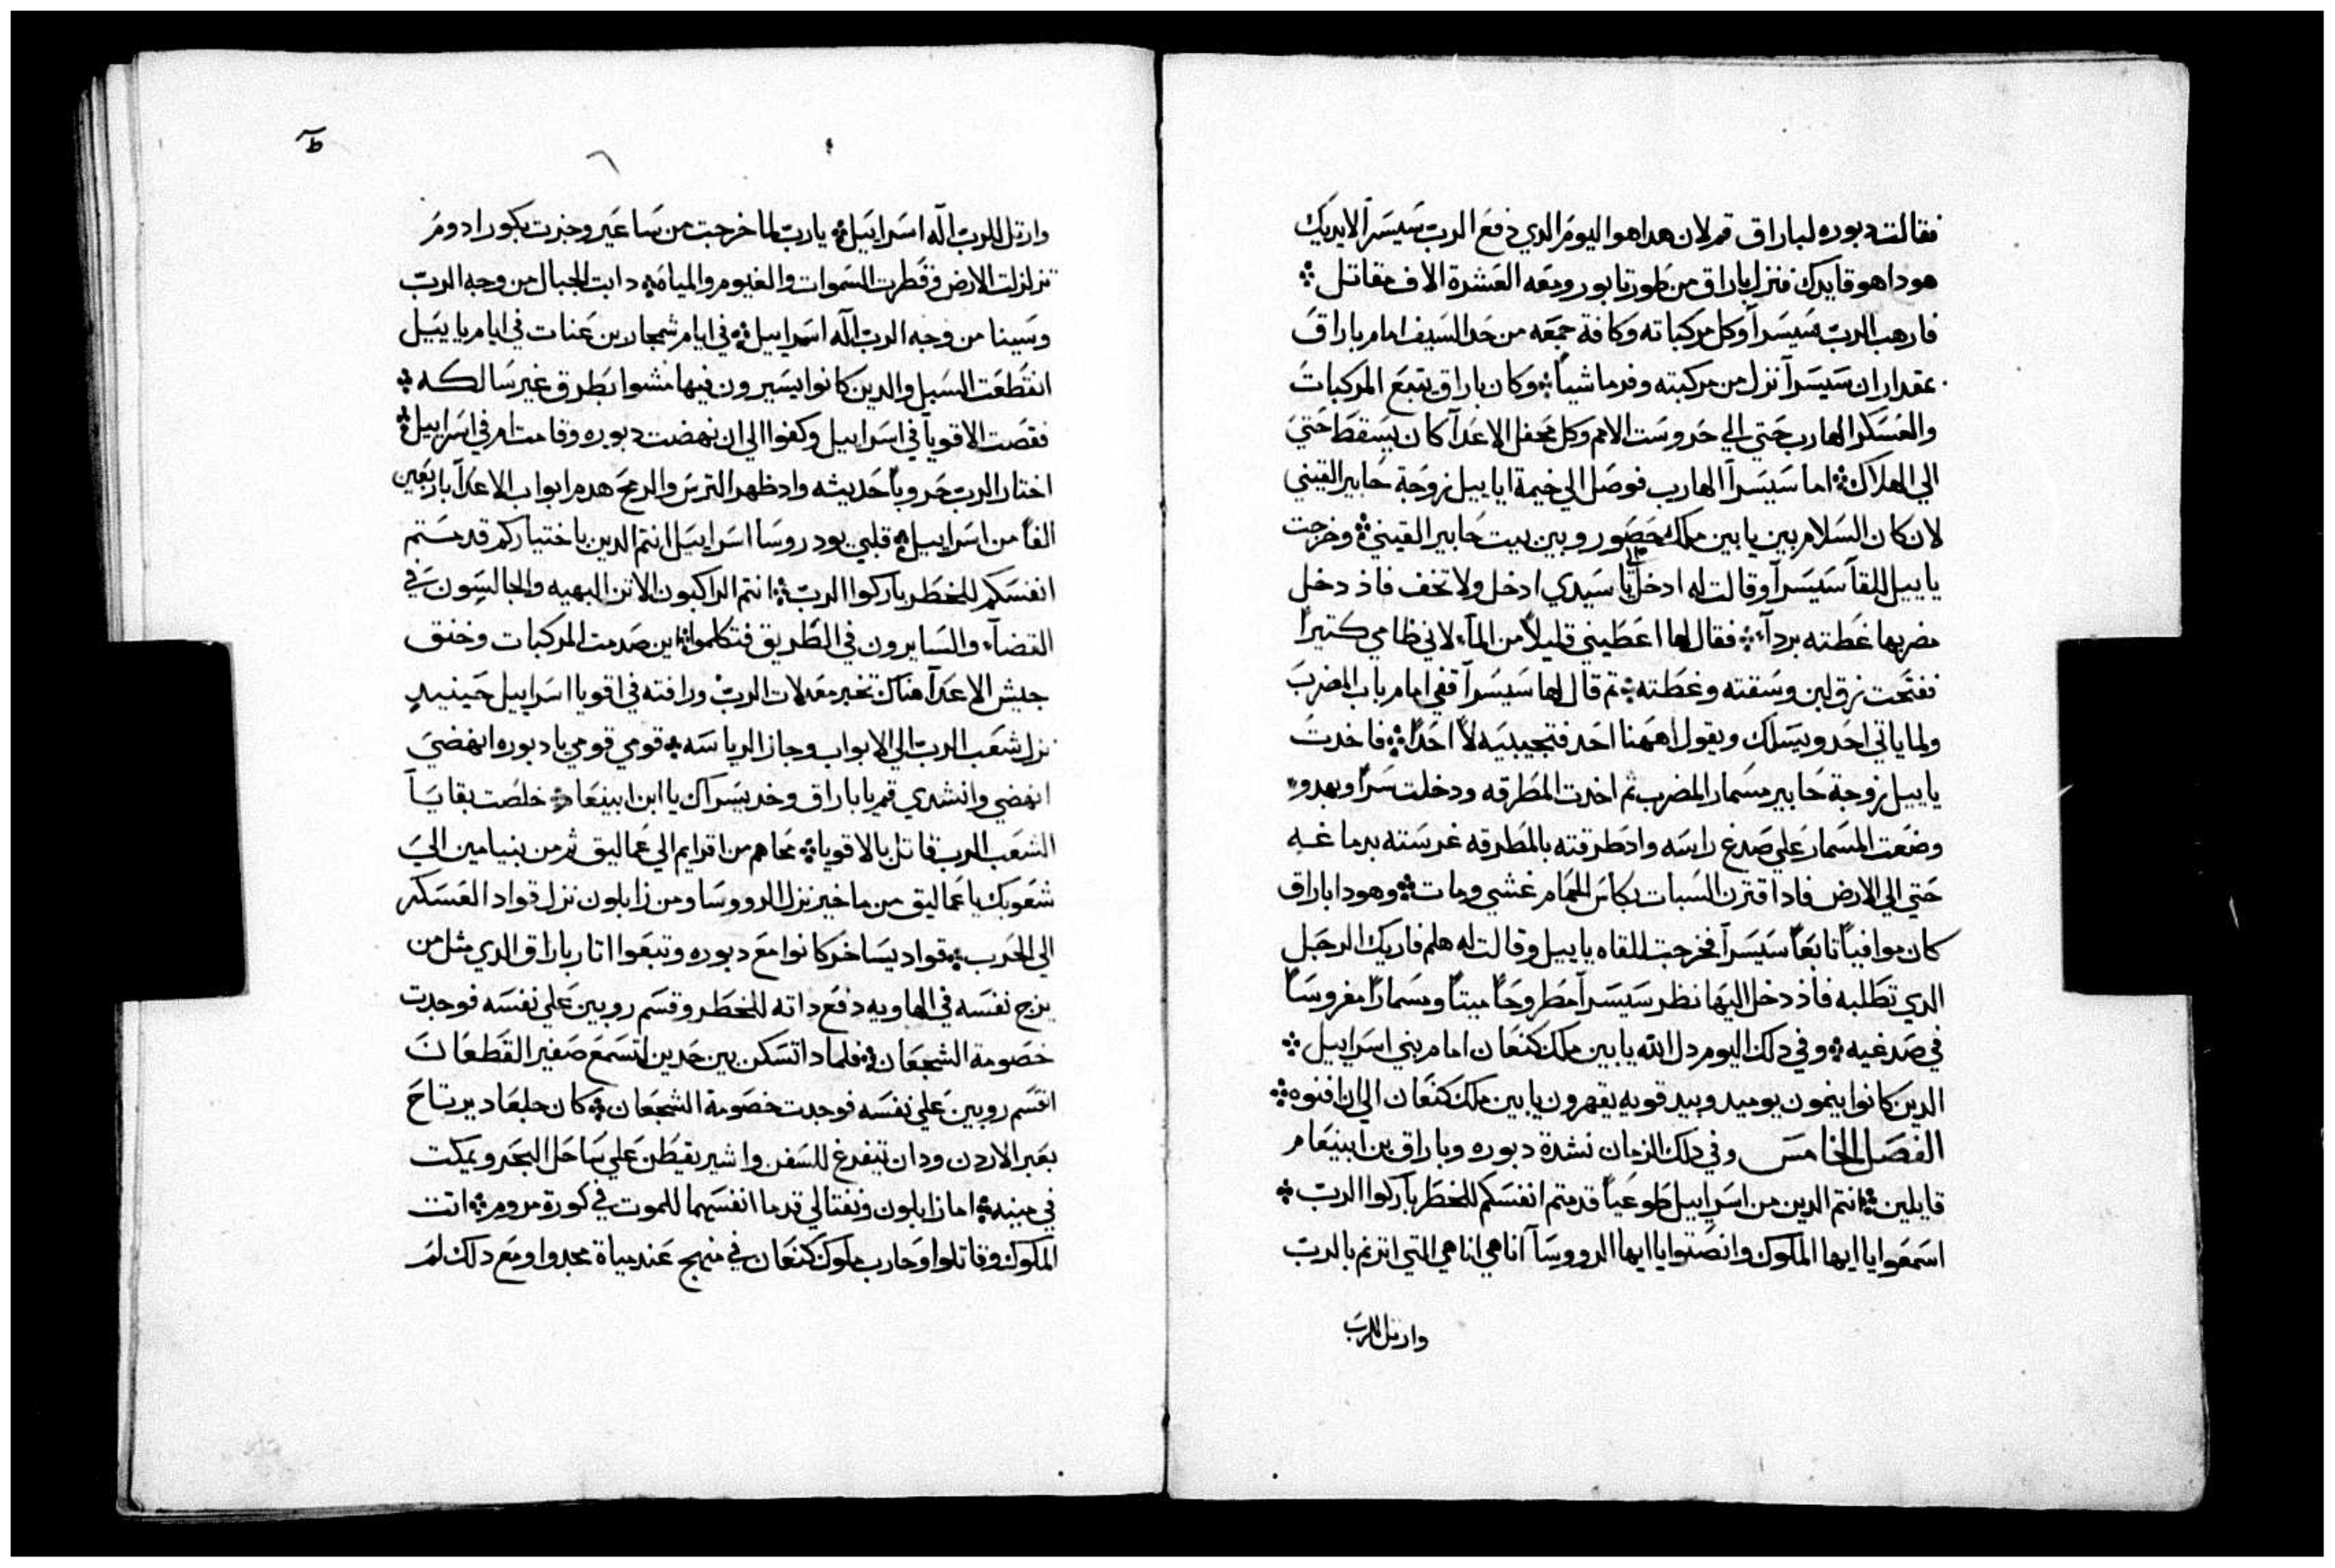 فقالت دبوره لباراق قم لان هدا هو اليوم الدي دفع الرب سيسرا لايديك
هودا هو قايدك فنزل باراق من طور تابور ومعه العشرة الاف مقاتل
فارهب الرب سيسرا وكل مركباته وكافة جمعه من حد السيف امام باراق
بمقدار ان سيسرا نزل من مركبته وفر ماشياً وكان باراق يتبع المركبات
والعسكر الهارب حتي الي حروست الامم وكل محفل الاعدا كان يسقط حتي
الي الهلاك اما سيسرا الهارب فوصل الي خيمة ياييل زوجة حابير القيني
لان كان السلام بين يابين ملك حصور وبين بيت حابير القيني وخرجت
ياييل للقا سيسرا وقالت له ادخل يا سيدي ادخل ولا تخف فاذ دخل
مضربها غطته بردآء فقال لها اعطيني قليلاً من المآء لاني ظامي كتيراً
ففتحت زق لبن وسقته وغطته تم قال لها سيسرا قفي امام باب المضرب
ولما ياتي احد ويسلك ويقول اههنا احد فتجيبيه لا احداً فاخدت
ياييل زوجة حابير مسمار المضرب تم اخدت المطرقه ودخلت سراً وبهدو
وضعت المسمار علي صدغ راسه واد طرقته بالمطرقه غرسته بدماغه
حتي الي الارض فادا قترن السبات بكاس الحمام غشي ومات وهودا باراق
كان موافياً تابعاً سيسرا فخرجت للقاه ياييل وقالت له هلم فاريك الرجل
الدي تطلبه فاذ دخل اليها نظر سيسرا مطروحاً ميتاً ومسماراً مغروساً
في صدغيه وفي دلك اليوم دل الله يابين ملك كنعان امام بني اسراييل
الدين كانوا ينمون يوميد وبيد قويه يقهرون يابين ملك كنعان الي ان افنوه
الفصل الخامس وفي دلك الزمان نشدة دبوره وباراق بن ابينعام
قايلين انتم الدين من اسراييل طوعياً قدمتم انفسكم للخطر باركوا الرب
اسمعوا يا ايها الملوك وانصتوا يا ايها الرووسا انا هي انا هي التي اترنم بالرب
وارتل للرب
وارتل للرب اله اسراييل يا رب لما خرجت من ساعير وجزت بكور ادوم
تزلزلت الارض وقطرت السموات والغيوم والمياه دابت الجبال من وجه الرب
وسينا من وجه الرب اله اسراييل في ايام شمجار بن عنات في ايام ياييل
انقطعت السبل والدين كانوا يسيرون فيها مشوا بطرق غير سالكه
فقصت الاقويا في اسراييل وكفوا الي ان نهضت دبوره وقامت ام في اسراييل
اختار الرب حروباً حديثه واد ظهر الترس والرمح هدم ابواب الاعدا باربعين
الفاً من اسراييل قلبي يود روسا اسراييل انتم الدين باختياركم قدمتم
انفسكم للخطر باركوا الرب انتم الراكبون الاتن البهيه والجالسون في
القضآء والسايرون في الطريق فتكلموا اين صدمت المركبات وخنق
جيش الاعدا هناك تخبر معدلات الرب ورافته في اقويا اسراييل حينيد
نزل شعب الرب الي الابواب وحاز الرياسه قومي قومي يا دبوره انهضي
انهضي وانشدي قم يا باراق وخد يسراك يا ابن ابينعام خلصت بقايا
الشعب الرب قاتل بالاقويا محاهم من افرايم الي عماليق ثم من بنيامين الي
شعوبك يا عماليق من ماخير نزل الرووسا ومن زابلون نزل قواد العسكر
الي الحرب قواد يساخر كانوا مع دبوره وتبعوا اتار باراق الدي مثل من
يزج نفسه في الهاويه دفع داته للخطر وقسم روبين علي نفسه فوجدت
خصومة الشجعان فلمادا تسكن بين حدين لتسمع صفير القطعان
انقسم روبين علي نفسه فوجدت خصومة الشجعان كان جلعاد يرتاح
بعبر الاردن ودان يتفرغ للسفن واشير يقيطن علي ساحل البحر ويمكت
في مينه اما زابلون ونفتالي قدما انفسهما للموت في كورة مروم اتت
الملوك وقاتلوا وحارب ملوك كنعان في منهج عند مياة مجدوا ومع دلك لم